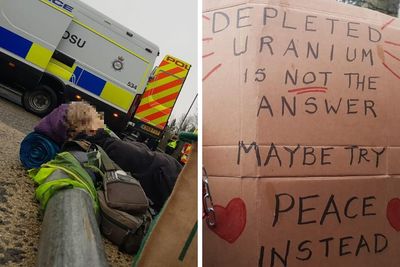 POLICE
OSU
534
POLI
DEPLETED
URANIUM
IS NOT THE
ANSWER
MAYBE TRY
PEACE
INSTEAD